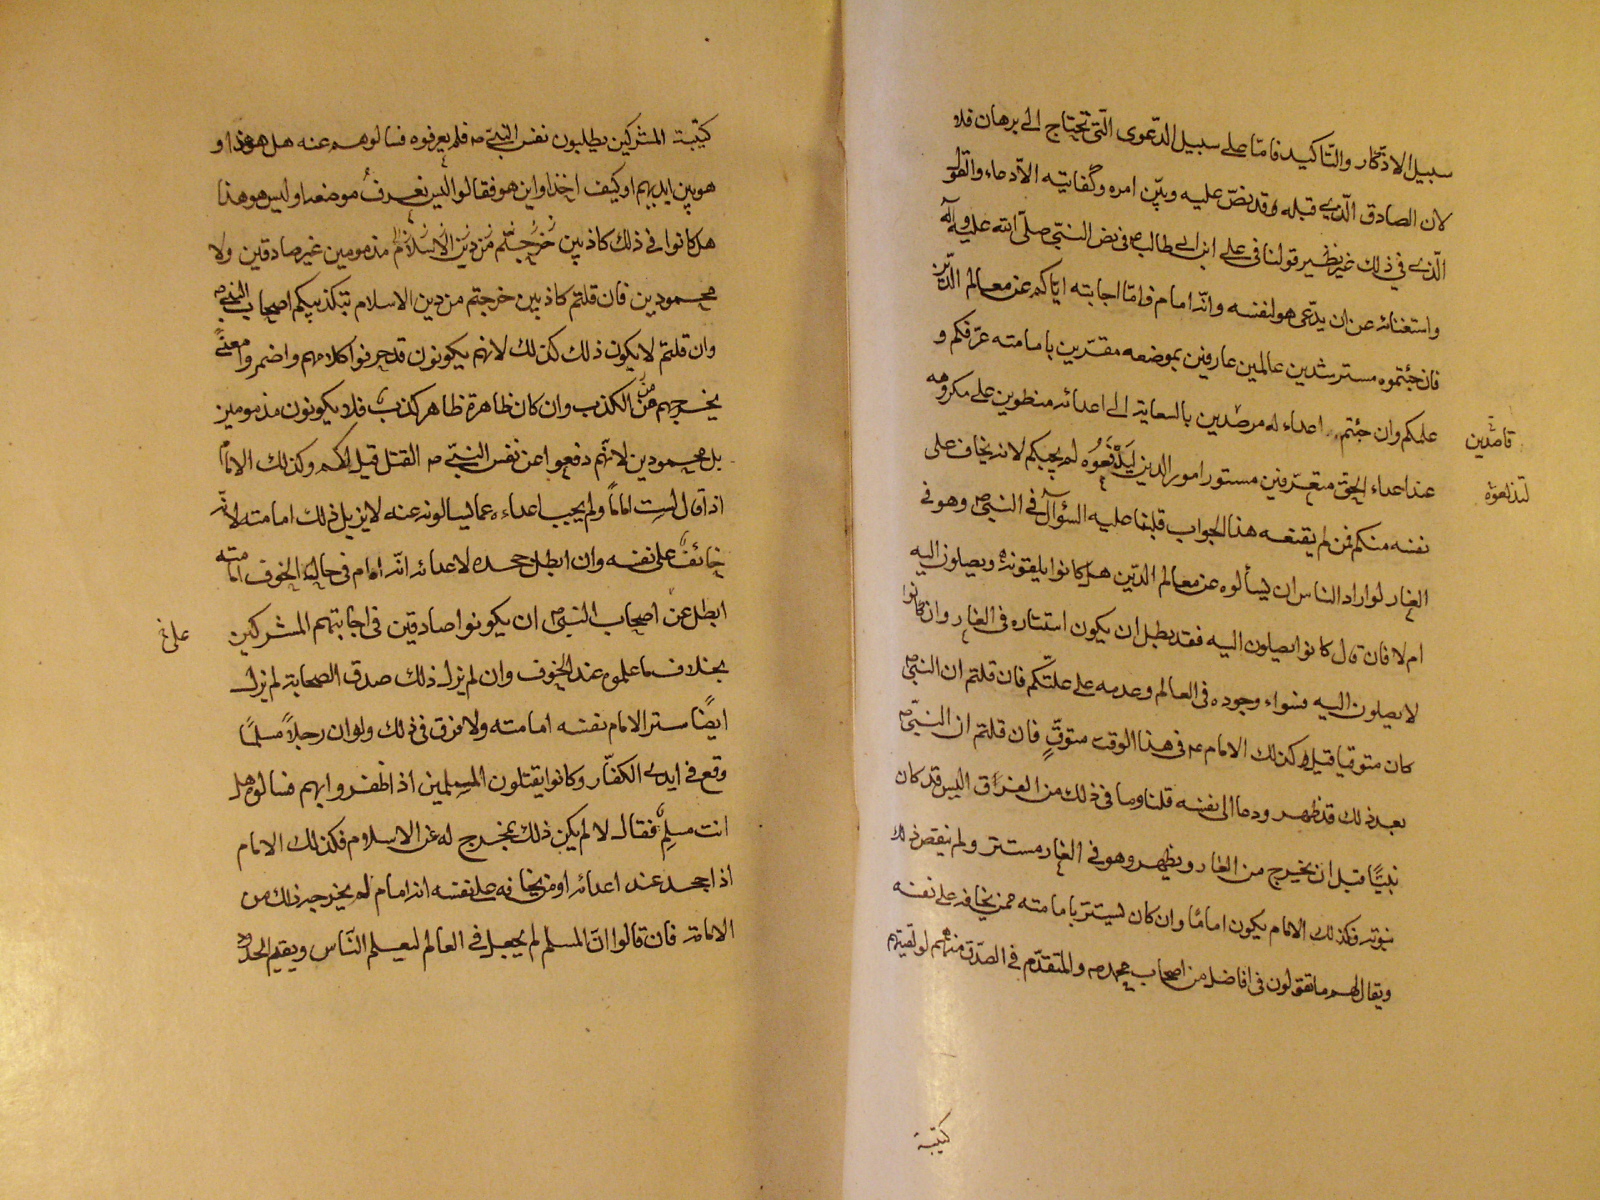 سبيل الاذكار والتاكيد فاما على سبيل الدّعوى الّتى تحتاج الى برهان فلا
لان الصادق الّذى قبله قد نصّ عليه وبيّن امره وكفايته الادعاء والقول
الّذى فى ذلك غير نظير قولنا فى على ابن ابى طالب ع فى نص النبىّ صلّى الله عليه وآله
واستغنائه عن ان يدّعى هو لنفسه وانّه امام فامّا اجابته ايّاكم عن معالم الدّين
فان جئتموه مسترشدين عالمين عارفين بموضعه مقرّين بامامته عرّفكم و
علمكم وان جئتم اعداء له مرصدين بالسعاية الى اعدائه منطوين على مكروهه
عند اعداء الحق متعرّفين مستور امور الدين ليدفعوه لم يجبكم لانه يخاف على
نفسه منكم فمن لم يقنعه هذا الجواب قلبنا عليه السؤال فى النبىّ ص وهو فى
الغار لو اراد الناس ان يسألوه عن معالم الدّين هل كانوا يلقونه ويصلون اليه
ام لا فان قال كانوا يصلون اليه فقد بطل ان يكون استتاره فى الغار وان كانوا
لا يصلون اليه فسواء وجوده فى العالم وعدمه على علّتكم فان قلتم ان النبىّ ص
كان متوقيا قيل كذلك الامام ع فى هذا الوقت متوقٍّ فان قلتم ان النبىّ ص
بعد ذلك قد ظهر ودعا الى نفسه قلنا وما فى ذلك من الفراق اليس قد كان
نبيًّا قبل ان يخرج من الغار ويظهر وهو فى الغار مستتر ولم ينقض ذلك
نبوته فكذلك الامام يكون امامًا وان كان يستتر بامامته ممن يخافه على نفسه
ويقال لهم ما تقولون فى افاضل من اصحاب محمد ص والمتقدّم فى الصّدق منهم لو لقيتهم
قاصدين
لتدلعوه
كتيبة
كتيبة المشركين يطلبون نفس النبىّ ص فلم يعرفوه فسالوهم عنه هل هو هذا و
هو بين ايديهم او كيف اخذ او اين هو فقالوا ليس نعرف موضعه او ليس هو هذا
هل كانوا فى ذلك كاذبين مذمومين غير صادقين ولا
محمودين فان قلتم كاذبين خرجتم من دين الاسلام بتكذيبكم اصحاب النبىّ ص
وان قلتم لا يكون ذلك كذلك لانهم يكونون قد حرفوا كلامهم واضمروا معنًى
يخرجهم من الكذب وان كان ظاهره ظاهر كذب فلا يكونون مذمومين
بل محمودين لانّهم دفعوا عن نفس النبىّ ص القتل قيل لكم وكذلك الامام
اذا قال لست اماماً ولم يجب اعداءه عما يسالونه عنه لا يزيل ذلك امامته لانّه
خائف على نفسه وان ابطل جحده لاعدائه انّه امام فى حال الخوف امامته
ابطل عن اصحاب النبىّ ص ان يكونوا صادقين فى اجابتهم المشركين
بخلاف ما علموه عند الخوف وان لم يزل ذلك صدق الصحابة لم يزل
ايضًا ستر الامام نفسه امامته ولا فرق فى ذلك ولو ان رجلاً مسلمًا
وقع فى ايدى الكفّار وكانوا يقتلون المسلمين اذا ظفروا بهم فسالوه هل
انت مسلم فقال لا لم يكن ذلك بمخرج له عن الاسلام فكذلك الامام
اذا جحد عند اعدائه او من يخافه على نفسه انه امام لم يخرجه ذلك من
الامامة فان قالوا انّ المسلم لم يجعل فى العالم ليعلم النّاس ويقيم الحدود